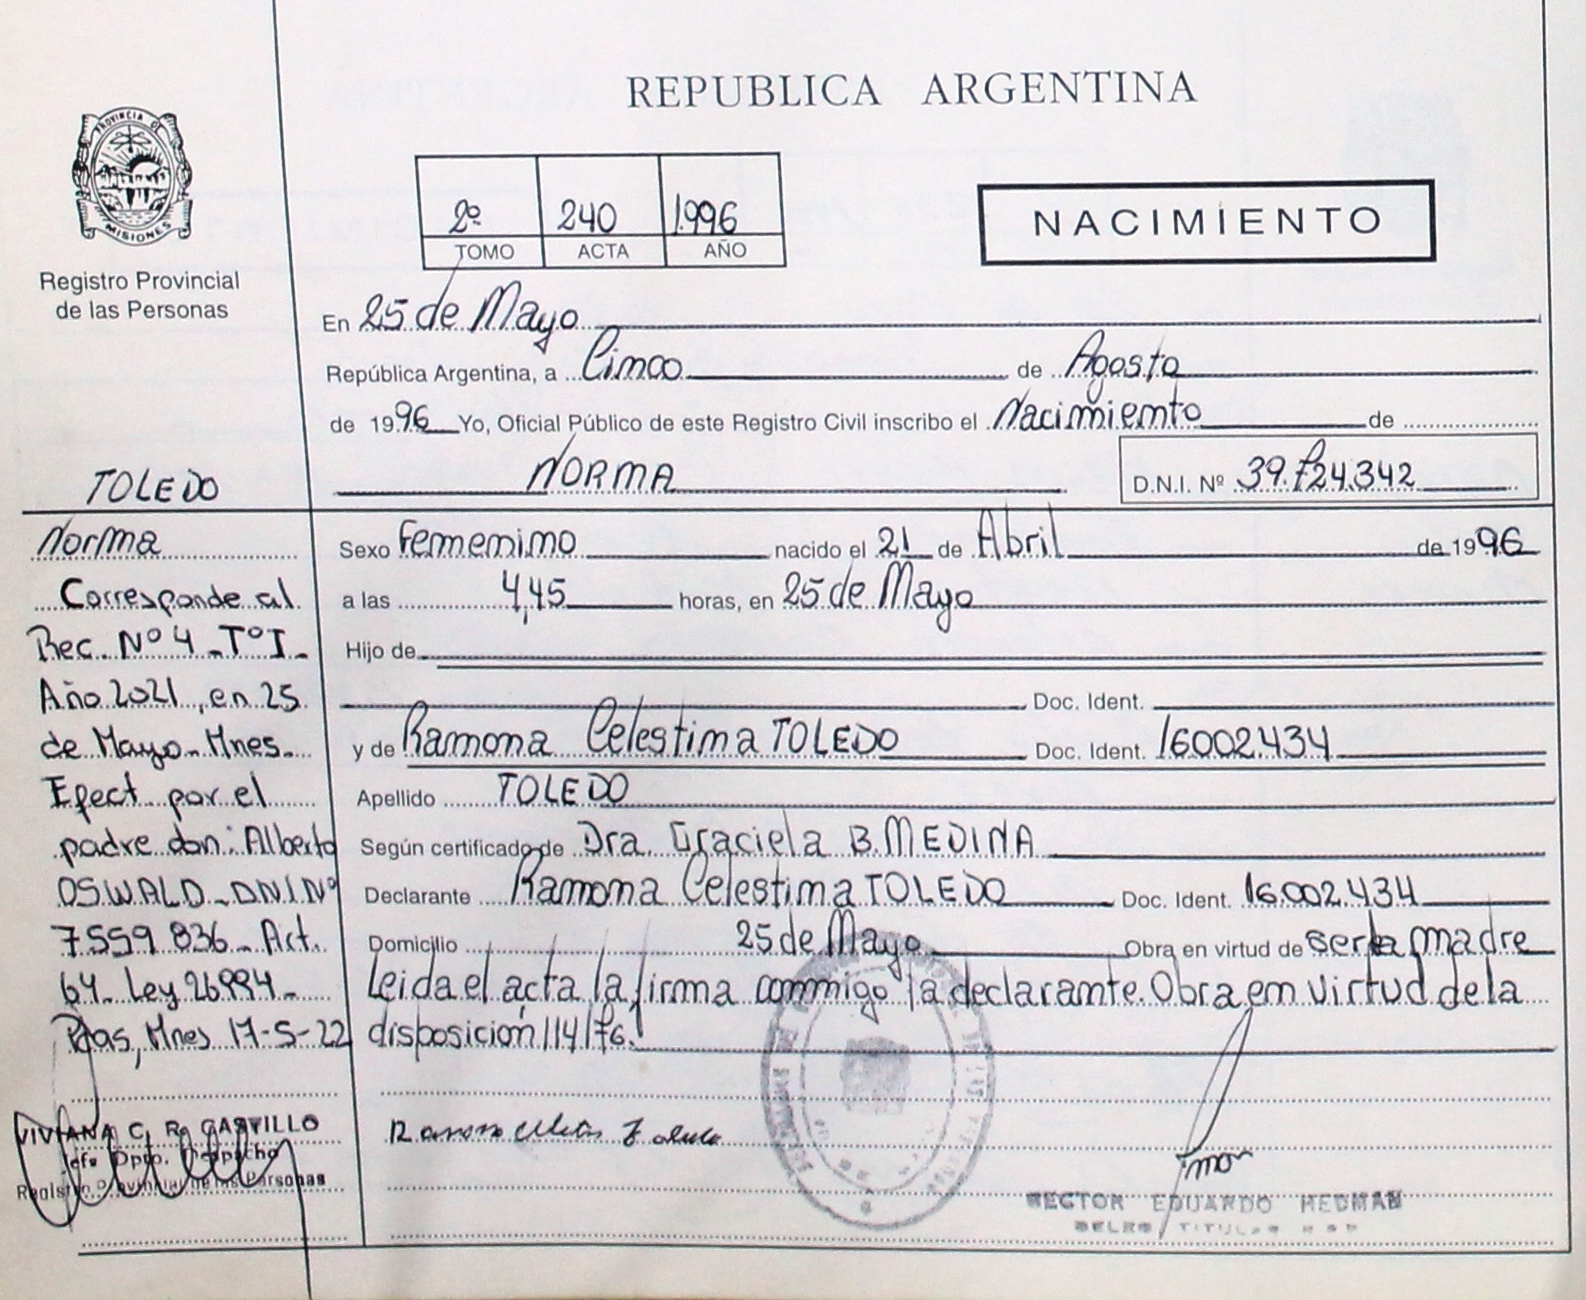 REPUBLICA ARGENTINA
PROVINCIA DE
MISIONES
Registro Provincial
de las Personas
2º 240 1.996
TOMO ACTA AÑO
NACIMIENTO
En 25 de Mayo
República Argentina, a Cinco de Agosto
de 1996 Yo, Oficial Público de este Registro Civil inscribo el Nacimiento de
NORMA D.N.I. Nº 39.724.342
Sexo Femenino nacido el 21 de Abril de 1996
a las 4,45 horas, en 25 de Mayo
Hijo de
Doc. Ident.
y de Ramona Celestina TOLEDO Doc. Ident. 16002.434
Apellido TOLEDO
Según certificado de Dra. Graciela B. MEDINA
Declarante Ramona Celestina TOLEDO Doc. Ident. 16.002.434
Domicilio 25 de Mayo Obra en virtud de ser la madre
Leida el acta la firma conmigo la declarante. Obra en virtud de la
disposición 114/76.
TOLEDO
Norma
Corresponde al
Rec. Nº 4 - Tº I -
Año 2021, en 25
de Mayo - Mnes.
Efect. por el
padre don: Alberto
OSWALD - DNI Nº
7.559.836 - Art.
64 - Ley 26994 -
Pdas, Mnes 17-5-22
VIVIANA C. R. CASTILLO
Jefe Dpto. Despacho
Registro Provincial de las Personas
HECTOR EDUARDO HEDMAN
TITULAR